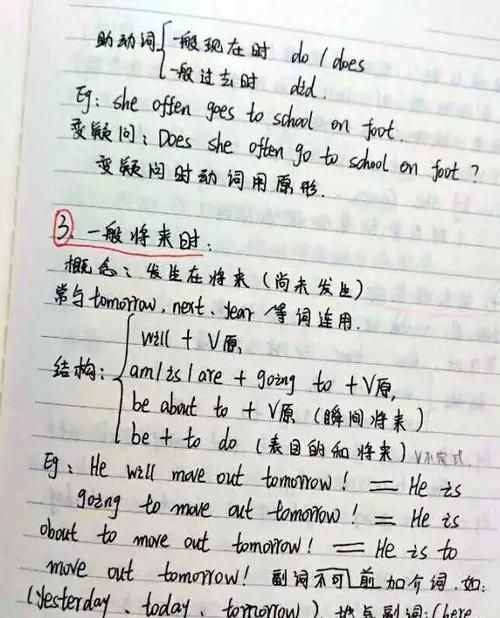 助动词{一般现在时 do / does
一般过去时 did.
Eg: she offen goes to school on foot.
变疑问: Does she often go to school on foot ?
变疑问时动词用原形.
③ 一般将来时:
概念: 发生在将来 (尚未发生)
常与 tomorrow, next. year 等词连用.
结构: { will + V原,
am/is/are + going to + V原,
be about to + V原 (瞬间将来)
be + to do (表目的和将来) V不定式.
Eg: He will move out tomorrow! = He is
going to move out tomorrow! = He is
about to move out tomorrow! = He is to
move out tomorrow! 副词不可前加介词. 如:
(Yesterday、today、tomorrow). 地点副词: (here